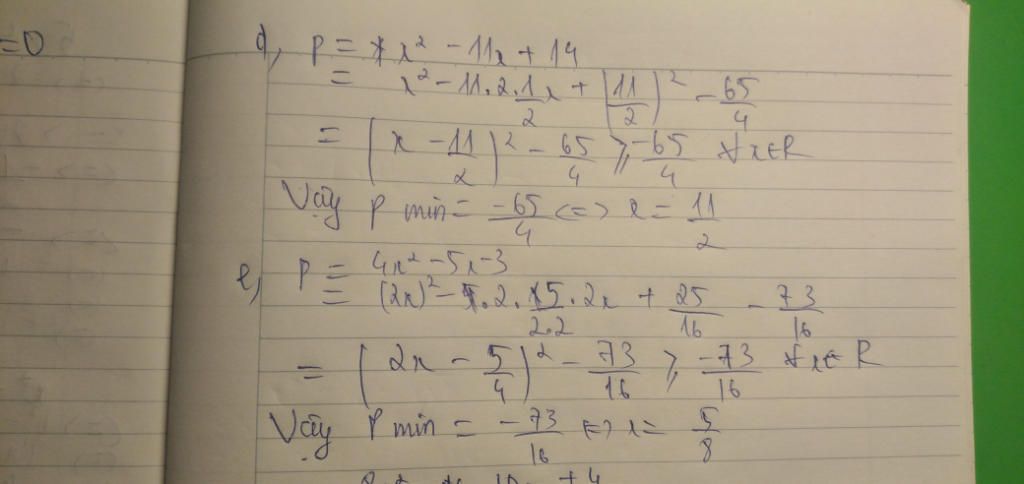 =0
d, P = x² - 11x + 14
= x² - 11.2.1/2 x + (11/2)² - 65/4
= (x - 11/2)² - 65/4 ⩾ -65/4 ∀x∈R
Vậy P min = -65/4 <=> x = 11/2
e, P = 4x² - 5x - 3
= (2x)² - 2.5/2.2.2x + 25/16 - 73/16
= (2x - 5/4)² - 73/16 ⩾ -73/16 ∀x∈R
Vậy P min = -73/16 <=> x = 5/8
+ 4